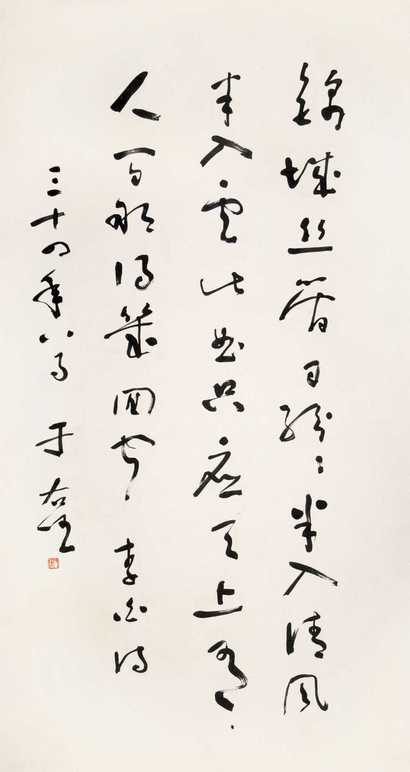 錦城絲管日紛紛半入清風
半入雲此曲只應天上有
人間能得幾回聞 李白詩
三十四年八月 于右任